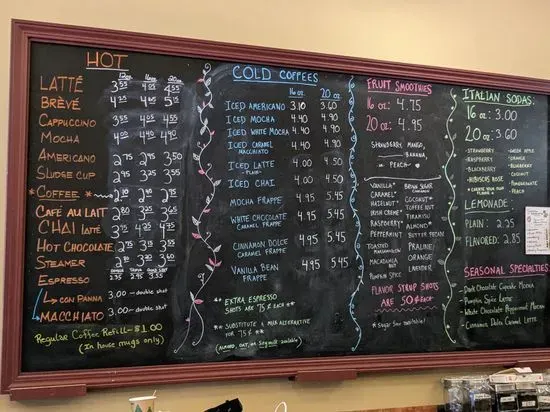 HOT
12oz 16oz 20oz
LATTÉ 3.55 4.05 4.55
BRÈVÉ 4.25 4.65 5.15
CAPPUCCINO 3.55 4.05 4.55
MOCHA 4.00 4.40 4.90
AMERICANO 2.75 2.95 3.50
SLUDGE CUP 2.95 3.25 3.55
*COFFEE* 2.10 2.40 2.75
CAFÉ AU LAIT 2.80 3.25 3.65
CHAI LATTÉ 3.75 4.15 4.45
HOT CHOCOLATE 2.75 3.15 3.55
STEAMER 2.80 3.20 3.60
ESPRESSO 2.35 2.45 3.55
CON PANNA 3.00 - double shot
MACCHIATO 3.00 - double shot
Regular Coffee Refill - $1.00
(In house mugs only)
COLD COFFEES
16 oz 20 oz
ICED AMERICANO 3.10 3.60
ICED MOCHA 4.40 4.90
ICED WHITE MOCHA 4.40 4.90
ICED CARAMEL MACCHIATO 4.40 4.90
ICED LATTE 4.00 4.50
- PLAIN -
ICED CHAI 4.00 4.50
MOCHA FRAPPE 4.95 5.45
WHITE CHOCOLATE 4.95 5.45
CARAMEL FRAPPE
CINNAMON DOLCE 4.95 5.45
CARAMEL FRAPPE
VANILLA BEAN 4.95 5.45
FRAPPE
** EXTRA ESPRESSO
SHOTS ARE 75¢ EACH **
** SUBSTITUTE A MILK ALTERNATIVE
FOR 75¢ **
(ALMOND, OAT, OR Soymilk available)
FRUIT SMOOTHIES
16 oz: 4.75
20 oz: 4.95
STRAWBERRY, MANGO,
BANANA
* PEACH *
VANILLA* BROWN SUGAR
CARAMEL* CINNAMON
HAZELNUT* COCONUT*
IRISH CREME* TOFFEE NUT
RASPBERRY TIRAMISU
PEPPERMINT ALMOND*
TOASTED BUTTER PECAN
MARSHMALLOW PRALINE
MACADAMIA ORANGE
NUT LAVENDER
PUMPKIN SPICE
FLAVOR SYRUP SHOTS
ARE 50¢ EACH
* Sugar free available!
ITALIAN SODAS:
16 oz: 3.00
20 oz: 3.60
• STRAWBERRY • GREEN APPLE
• RASPBERRY • ORANGE
• BLACKBERRY • BLUEBERRY
• HIBISCUS ROSE • COCONUT
• POMEGRANATE
• PEACH
* CREATE YOUR OWN FLAVOR *
LEMONADE:
PLAIN: 2.25
FLAVORED: 2.85
SEASONAL SPECIALTIES
• Dark Chocolate Cupcake Mocha
• Pumpkin Spice Latte
• White Chocolate Peppermint Mocha
• Cinnamon Dolce Caramel Latte